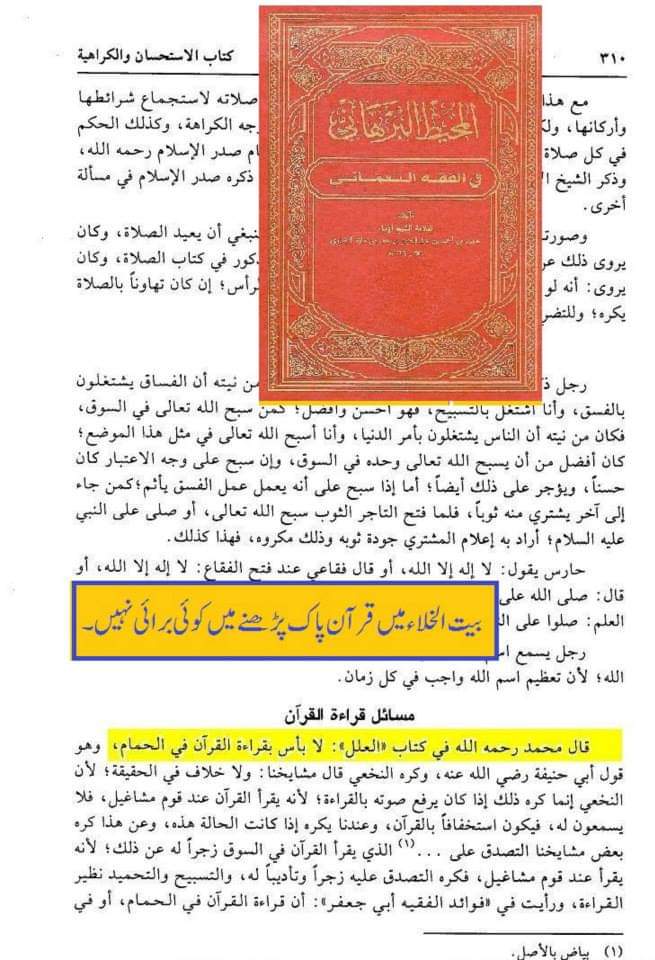 كتاب الاستحسان والكراهية
٣١٠
مع هذا
صلاته لاستجماع شرائطها
وأركانها، ولك
وجه الكراهة، وكذلك الحكم
في كل صلاة
م صدر الإسلام رحمه الله،
وذكر الشيخ الإ
ذكره صدر الإسلام في مسألة
أخرى.
وصورتـ
ينبغي أن يعيد الصلاة، وكان
يروى ذلك عن
ذكور في كتاب الصلاة، وكان
يروى: أنه لو
لرأس؛ إن كان تهاوناً بالصلاة
يكره؛ وللتضر
المحيط البرهاني
في الفقه النعماني
رجل ذ
من نيته أن الفساق يشتغلون
بالفسق، وأنا أشتغل بالتسبيح، فهو أحسن وأفضل؛ كمن سبح الله تعالى في السوق،
فكان من نيته أن الناس يشتغلون بأمر الدنيا، وأنا أسبح الله تعالى في مثل هذا الموضع؛
كان أفضل من أن يسبح الله تعالى وحده في السوق، وإن سبح على وجه الاعتبار كان
حسناً، ويؤجر على ذلك أيضاً؛ أما إذا سبح على أنه يعمل عمل الفسق يأثم؛ كمن جاء
إلى آخر يشتري منه ثوباً، فلما فتح التاجر الثوب سبح الله تعالى، أو صلى على النبي
عليه السلام؛ أراد به إعلام المشتري جودة ثوبه وذلك مكروه، فهذا كذلك.
حارس يقول: لا إله إلا الله، أو قال فقاعي عند فتح الفقاع: لا إله إلا الله، أو
قال: صلى الله على
العلم: صلوا على الن
بیت الخلاء میں قرآن پاک پڑھنے میں کوئی برائی نہیں۔
رجل يسمع اسم
الله؛ لأن تعظيم اسم الله واجب في كل زمان.
مسائل قراءة القرآن
قال محمد رحمه الله في كتاب «العلل»: لا بأس بقراءة القرآن في الحمام، وهو
قول أبي حنيفة رضي الله عنه، وكره النخعي قال مشايخنا: ولا خلاف في الحقيقة؛ لأن
النخعي إنما كره ذلك إذا كان يرفع صوته بالقراءة؛ لأنه يقرأ القرآن عند قوم مشاغيل، فلا
يسمعون له، فيكون استخفافاً بالقرآن، وعندنا يكره إذا كانت الحالة هذه، وعن هذا كره
بعض مشايخنا التصدق على ...(١) الذي يقرأ القرآن في السوق زجراً له عن ذلك؛ لأنه
يقرأ عند قوم مشاغيل، فكره التصدق عليه زجراً وتأديباً له، والتسبيح والتحميد نظير
القراءة، ورأيت في «فوائد الفقيه أبي جعفر»: أن قراءة القرآن في الحمام، أو في
(١) بياض بالأصل.